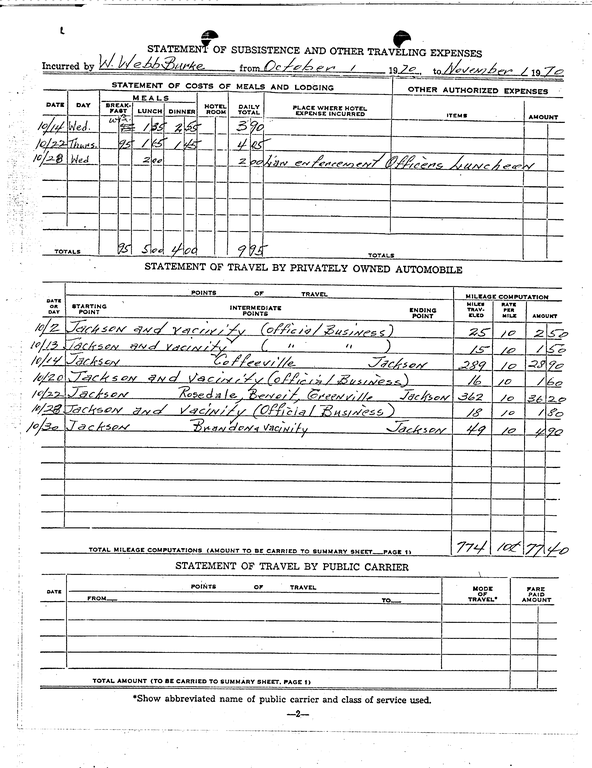 STATEMENT OF SUBSISTENCE AND OTHER TRAVELING EXPENSES
Incurred by W. Webb Burke from October 1 1970 to November 1 1970
STATEMENT OF COSTS OF MEALS AND LODGING OTHER AUTHORIZED EXPENSES
DATE DAY MEALS BREAK-FAST LUNCH DINNER HOTEL ROOM DAILY TOTAL PLACE WHERE HOTEL EXPENSE INCURRED ITEMS AMOUNT
10/14 Wed. 1 35 2 55 3 90
10/22 Thurs. 95 1 65 1 45 4 05
10/28 Wed 2 00 2 00 Law enforcement Officers Luncheon
TOTALS 95 5 00 4 00 9 95 TOTALS
STATEMENT OF TRAVEL BY PRIVATELY OWNED AUTOMOBILE
DATE OR DAY POINTS OF TRAVEL MILEAGE COMPUTATION
STARTING POINT INTERMEDIATE POINTS ENDING POINT MILES TRAV-ELED RATE PER MILE AMOUNT
10/2 Jackson and vacinity (official Business) 25 10 2 50
10/13 Jackson and vacinity ( " " ) 15 10 1 50
10/14 Jackson Coffeeville Jackson 289 10 28 90
10/20 Jackson and vacinity (official Business) 16 10 1 60
10/22 Jackson Rosedale, Benoit, Greenville Jackson 362 10 36 20
10/28 Jackson and vacinity (Official Business) 18 10 1 80
10/30 Jackson Brandon & vacinity Jackson 49 10 4 90
TOTAL MILEAGE COMPUTATIONS (AMOUNT TO BE CARRIED TO SUMMARY SHEET—PAGE 1) 774 10¢ 77 40
STATEMENT OF TRAVEL BY PUBLIC CARRIER
DATE POINTS OF TRAVEL MODE OF TRAVEL* FARE PAID AMOUNT
FROM TO
TOTAL AMOUNT (TO BE CARRIED TO SUMMARY SHEET, PAGE 1)
*Show abbreviated name of public carrier and class of service used.
—2—